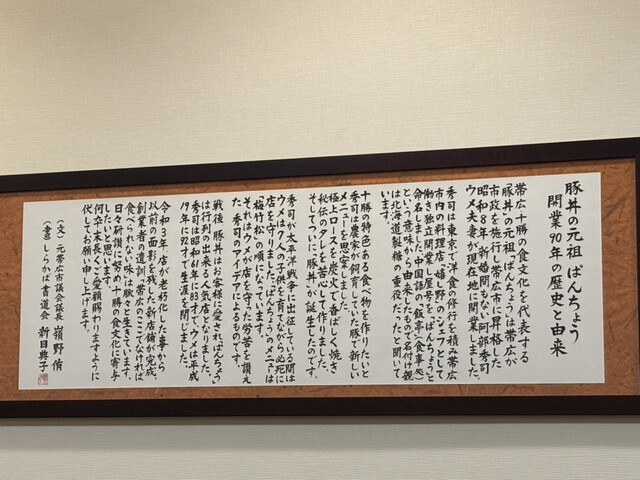 豚丼の元祖 ぱんちょう
開業90年の歴史と由来
帯広十勝の食文化を代表する
豚丼の元祖「ぱんちょう」は帯広が
市政を施行し帯広市に昇格した
昭和8年、新婚間もない阿部秀司
ウメ夫妻が現在地に開業しました。
秀司は東京で洋食の修行を積み帯広
市内の料理店「嬉し野」のシェフとして
働き独立開業し屋号を「ぱんちょう」と
命名しました。中国語の飯亭（食事処）
という意味から由来したもので名付け親
は北海道製糖の重役だったと聞いて
います。
十勝の特色ある食べ物を作りたいと
秀司は農家が飼育していた豚で新しい
メニューを思案しました。
極上ロースを炭火で香ばしく焼き
秘伝のタレを苦心して作りました。
そしてついに「豚丼」が誕生したのです。
秀司が太平洋戦争に出征している間は
ウメは7人の子供を育てながら必死に
店を守りました。「ぱんちょう」のメニューは
「梅竹松」の順になっています。
それはウメが店を守った労苦を讃え
た、秀司のアイデアによるものです。
戦後 豚丼はお客様に愛されぱんちょう
は行列の出来る人気店となりました。
秀司は昭和61年に83才で、ウメは平成
19年に92才で生涯を閉じました。
令和3年 店が老朽化した事から
以前の面影を残し新店舗が完成。
創業者の遺訓「帯広のここでなければ
食べられないもの」は脈々と生きています。
日々研讃に努め十勝の食文化に寄与
したいと思います。
何卒 末長くご愛顧賜わりますように
伏してお願い申し上げます。
（文） 元帯広市議会議長 嶺野 侑
（書） しらかば書道会 新目典子